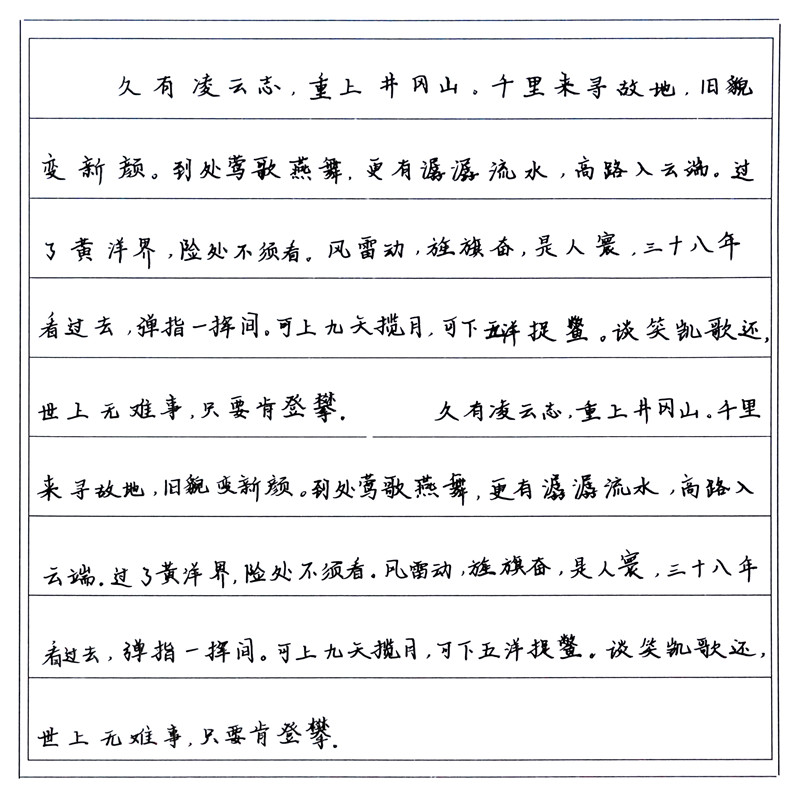 久有凌云志，重上井冈山。千里来寻故地，旧貌
变新颜。到处莺歌燕舞，更有潺潺流水，高路入云端。过
了黄洋界，险处不须看。风雷动，旌旗奋，是人寰，三十八年
看过去，弹指一挥间。可上九天揽月，可下五洋捉鳖。谈笑凯歌还，
世上无难事，只要肯登攀. 久有凌云志，重上井冈山。千里
来寻故地，旧貌变新颜。到处莺歌燕舞，更有潺潺流水，高路入
云端.过了黄洋界，险处不须看.风雷动，旌旗奋，是人寰，三十八年
看过去，弹指一挥间。可上九天揽月，可下五洋捉鳖。谈笑凯歌还，
世上无难事，只要肯登攀.